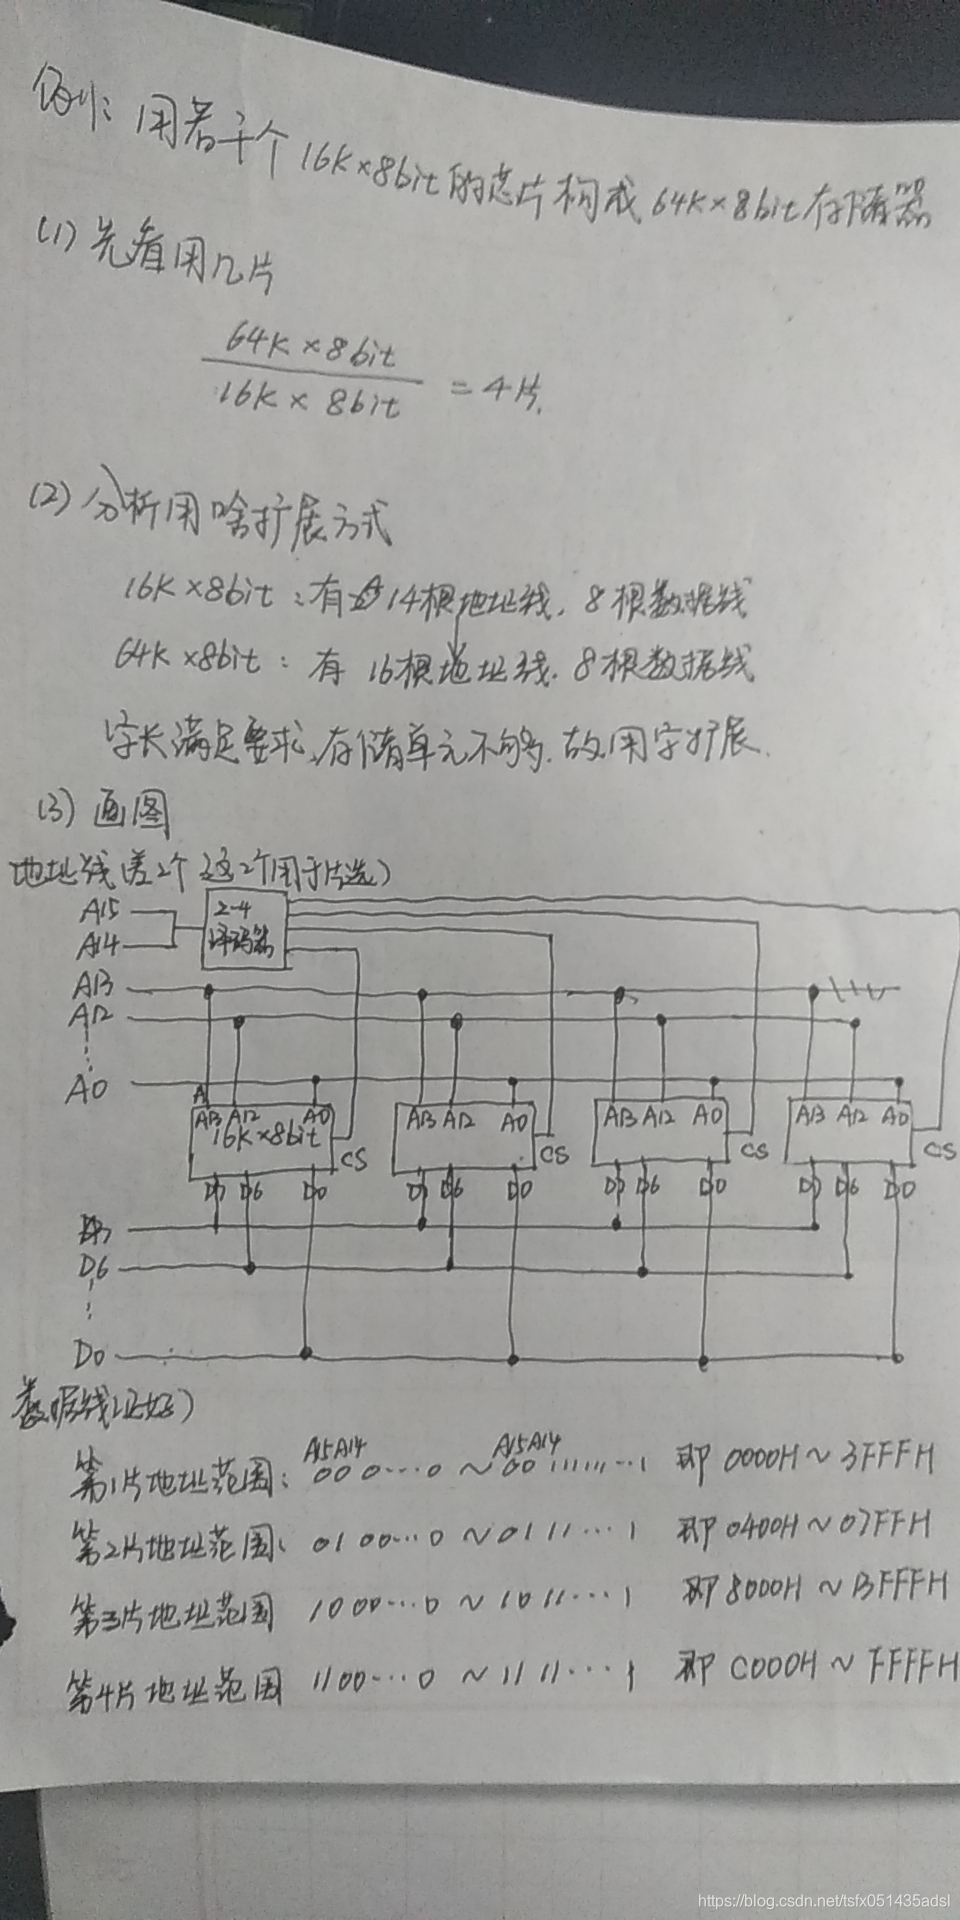 例: 用若干个16K×8bit的芯片构成64K×8bit存储器
(1) 先看用几片
64K×8bit
16K×8bit
=4片.
(2) 分析用啥扩展方式
16K×8bit: 有14根地址线. 8根数据线
64K×8bit: 有16根地址线. 8根数据线
字长满足要求,存储单元不够.故用字扩展.
(3) 画图
地址线(差2个 这2个用于片选)
A15
A14
2-4
译码器
A13
A12
A0
A
A13 A12 A0
A13 A12 A0
A13 A12 A0
A13 A12 A0
16K×8bit
CS
CS
CS
CS
D7 D6 D0
D7 D6 D0
D7 D6 D0
D7 D6 D0
D7
D6
D0
数据线(正好)
A15A14 A15A14
第1片地址范围: 00 0···0 ~ 00 111111···1 即 0000H~3FFFH
第2片地址范围: 01 00···0 ~ 01 11···1 即 0400H~07FFH
第3片地址范围 10 00···0 ~ 10 11···1 即 8000H~BFFFH
第4片地址范围 11 00···0 ~ 11 11···1 即 C000H~FFFFH
https://blog.csdn.net/tsfx051435adsl